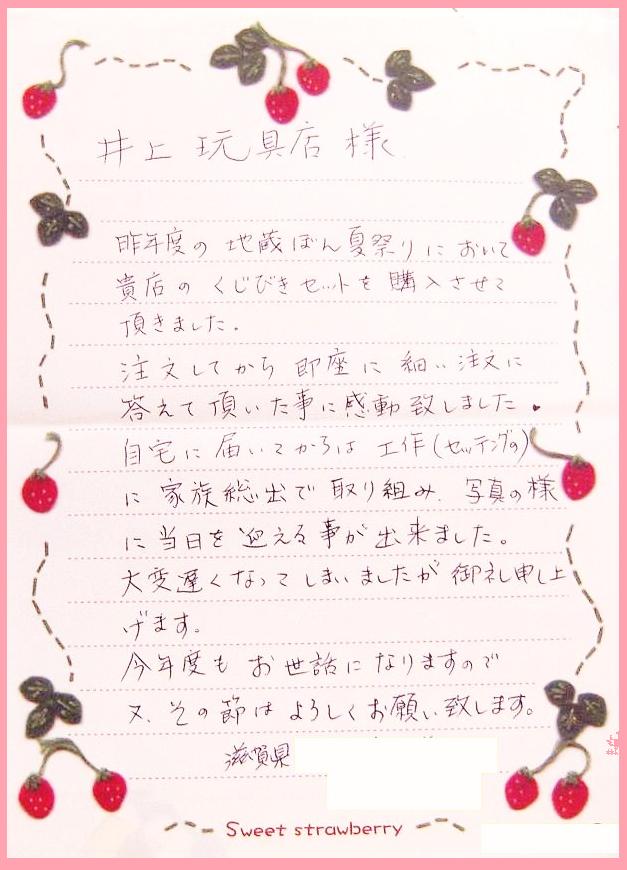 井上 玩具店 様
昨年度の 地蔵ぼん夏祭りにおいて
貴店のくじびきセットを購入させて
頂きました。
注文してから即座に細い注文に
答えて頂いた事に感動致しました。
自宅に届いてからは工作(セッテングの)
に家族総出で取り組み、写真の様
に当日を迎える事が出来ました。
大変遅くなってしまいましたが御礼申し上
げます。
今年度もお世話になりますので
又、その節はよろしくお願い致します。
滋賀県
Sweet strawberry